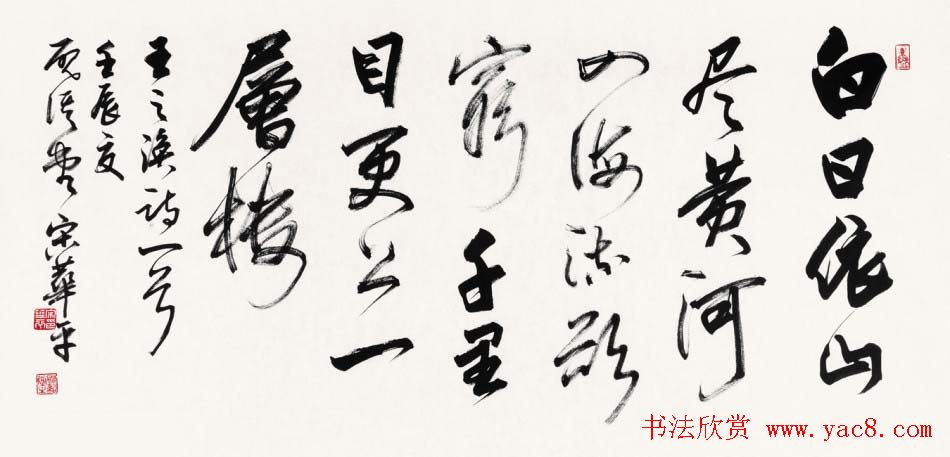 白日依山
尽黄河
入海流欲
窮千里
目更上一
層楼
王之涣诗一首
壬辰夏
宋華平
书法欣赏 www.yac8.com